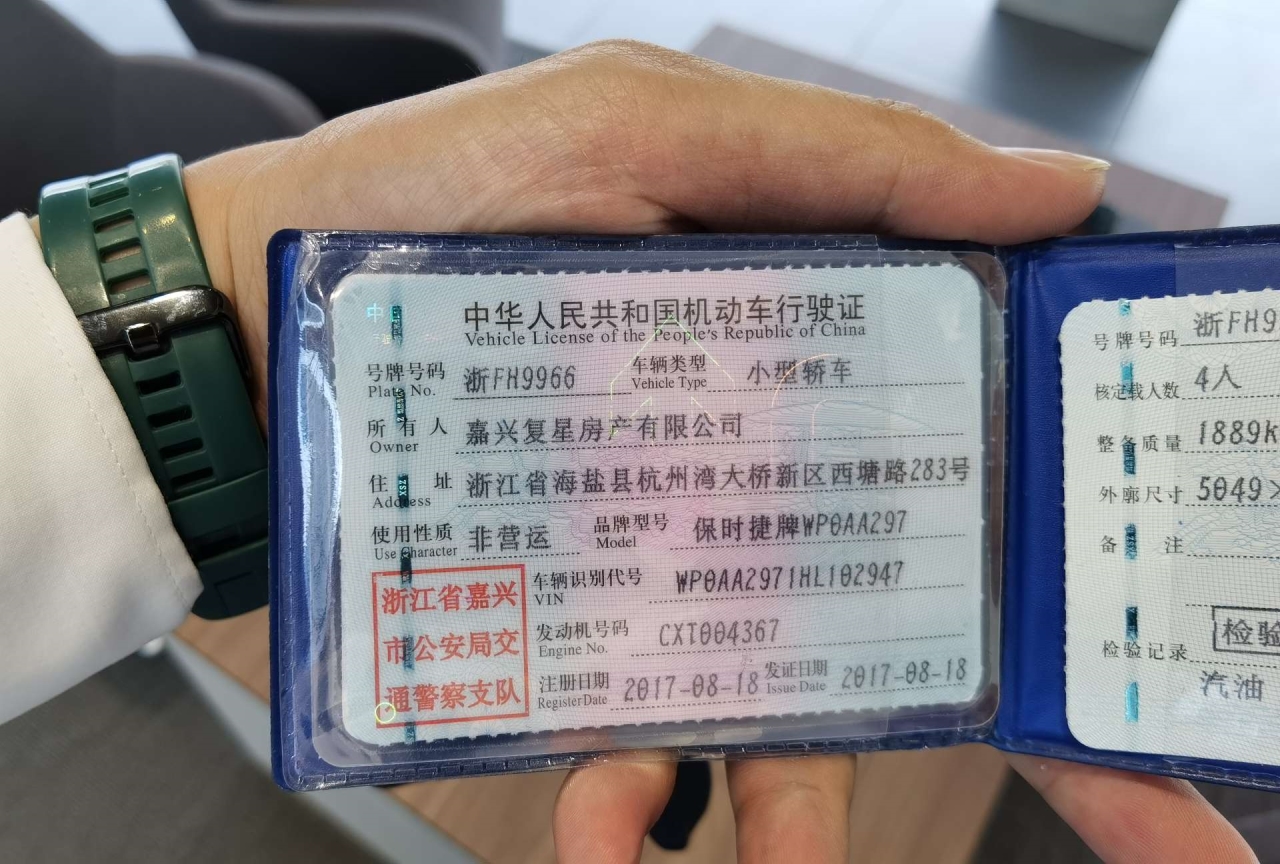 中华人民共和国机动车行驶证
Vehicle License of the People's Republic of China
号牌号码 浙FH9966 车辆类型 小型轿车
Plate No. Vehicle Type
所有人 嘉兴复星房产有限公司
Owner
住址 浙江省海盐县杭州湾大桥新区西塘路283号
Address
使用性质 非营运 品牌型号 保时捷牌WP0AA297
Use Character Model
浙江省嘉兴
市公安局交
通警察支队
车辆识别代号 WP0AA2971HL102947
VIN
发动机号码 CXT004367
Engine No.
注册日期 2017-08-18 发证日期 2017-08-18
Register Date Issue Date
号牌号码 浙FH9
核定载人数 4人
整备质量 1889k
外廓尺寸 5049×
备注
检验记录 检验
汽油